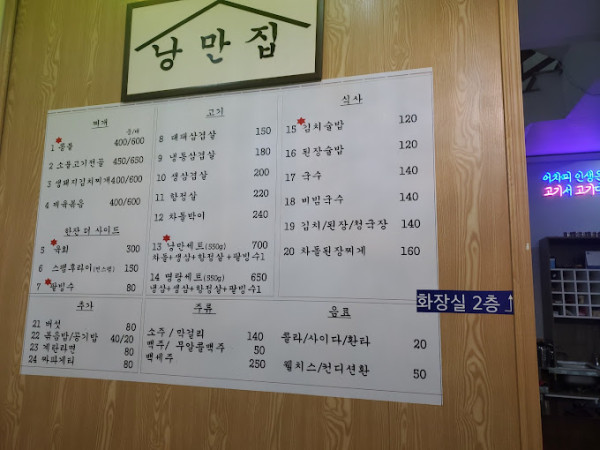 낭만집
찌개
소/대
1 물통 400/600
2 소불고기전골 450/650
3 생돼지김치찌개 400/600
4 제육볶음 400/600
한잔 더 사이드
5 육회 300
6 스팸후라이(캔스팸) 150
7 팥빙수 80
고기
8 대패삼겹살 150
9 냉동삼겹살 180
10 생삼겹살 200
11 항정살 220
12 차돌박이 240
13 낭만세트(550g) 700
차돌+생삼+항정살+팥빙수1
14 명랑세트(550g) 650
냉삼+생삼+항정살+팥빙수1
식사
15 김치술밥 120
16 된장술밥 120
17 국수 120
18 비빔국수 120
19 김치/된장/청국장 140
20 차돌된장찌개 160
추가
21 버섯 80
22 볶음밥/공기밥 40/20
23 계란라면 80
24 짜파게티 80
주류
소주/막걸리 140
맥주/무알콜맥주 50
백세주 250
음료
콜라/사이다/환타 20
웰치스/컨디션환 50
화장실 2층 ↑
어차피 인생은
고기서 고기다